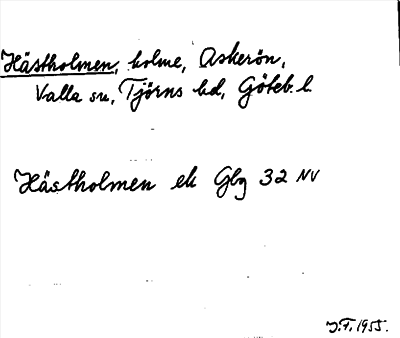 Hästholmen, holme, Askerön,
Valla sn, Tjörns hd, Göteb. l.
Hästholmen ek Gbg 32 NV
J.F. 1955.